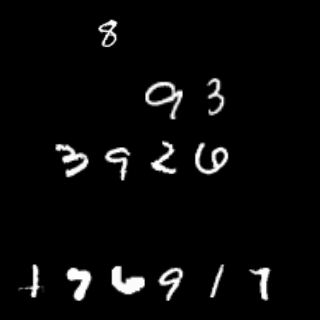 8
93
3926
176917